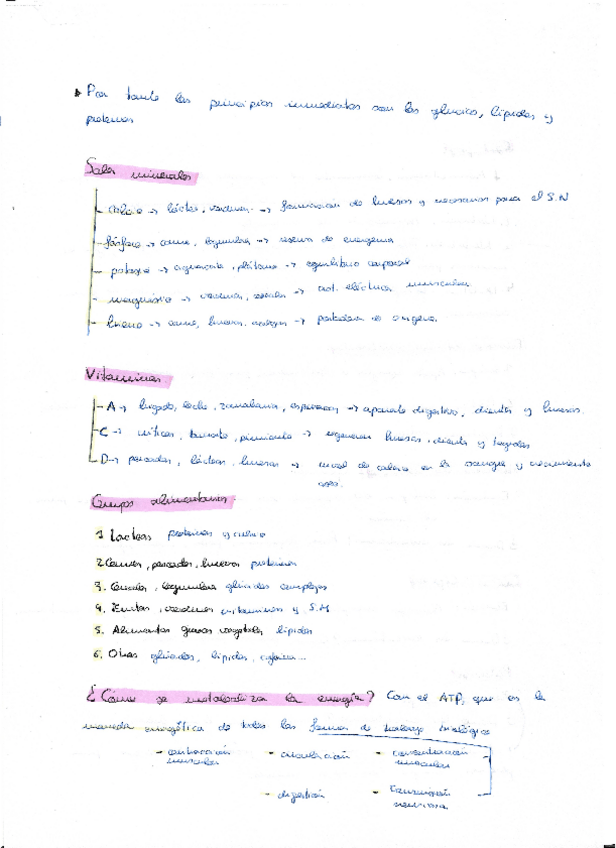 Por tanto los principios inmediatos son los glúcidos, lípidos y
proteínas
Sales minerales
- calcio → lácteo, verduras → formación de huesos y necesarios para el S.N
- fósforo → carne, legumbres → reserva de energía
- potasio → aguacate, plátano → equilibrio corporal
- magnesio → verduras, cereales → act. eléctrica muscular
- hierro → carne, huevos, → portadora de oxígeno
Vitaminas
- A → hígado, leche, zanahoria, espinacas → aparato digestivo, dientes y huesos.
- C → cítricos, tomate, pimiento → regeneran huesos, dientes y tejidos
- D → pescados, lácteos, huevos → nivel de calcio en la sangre y crecimiento
Grupos alimentarios.
1 Lácteos proteínas y calcio
2. Carnes, pescados, huevos proteínas
3. Cereales, legumbres glúcidos complejos
4. Frutas, verduras vitaminas y S.M
5. Alimentos grasos vegetales lípidos
6. Otros glúcidos, lípidos, cafeína...
¿Cómo se metaboliza la energía? Con el ATP, que es la
moneda energética de todas las formas de trabajo biológico
- contracción muscular - circulación - contracción muscular
- digestión - transmisión nerviosa